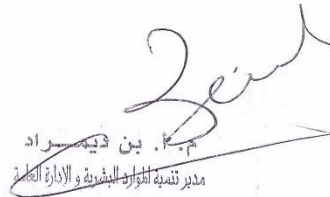 م.أ. بن ديمـــراد
مدير تنمية الموارد البشرية و الإدارة العامة